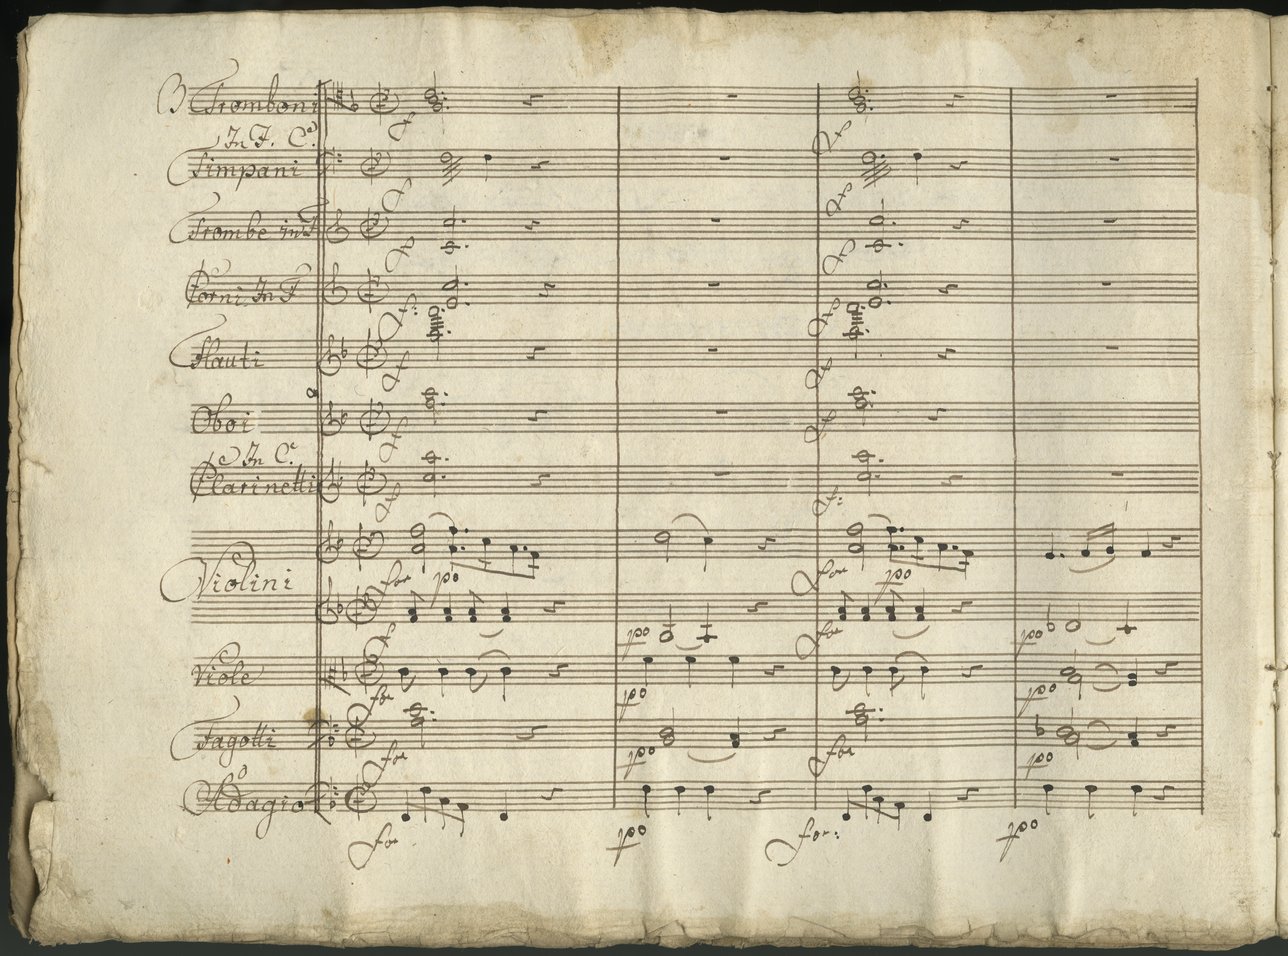 3 Tromboni
In F. C.
Timpani
Trombe in F
Corni In F
Flauti
Oboi
In C.
Clarinetti
Violini
for po for po
po for po
Viole
for po po
Fagotti
for po for po
Adagio
for po for: po